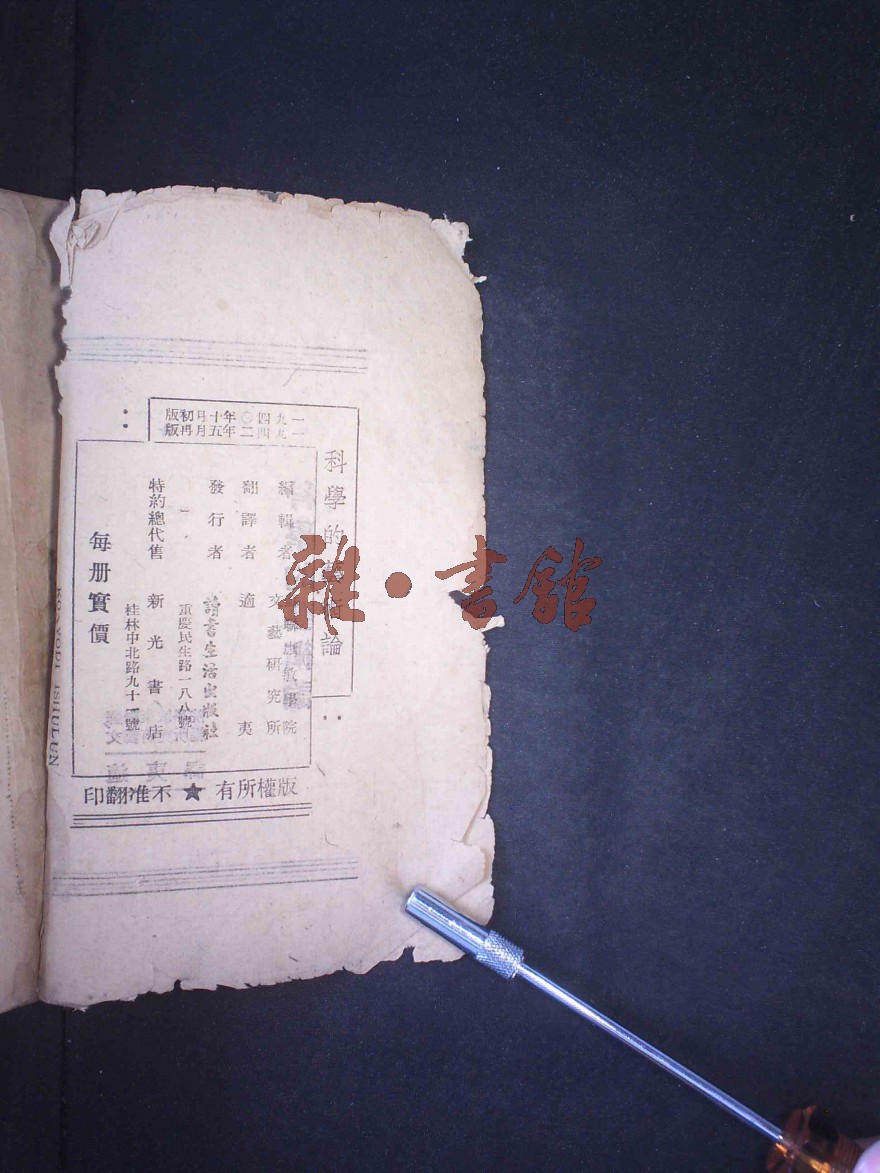 一九四〇年十月初版
一九四二年五月再版
科學的 論
編輯者 學院
文藝研究所
翻譯者 適夷
發行者 讀書生活出版社
重慶民生路一八八號
特約總代售 新光書店
桂林中北路九十一號
每册實價
版權所有★不准翻印
雜·書館